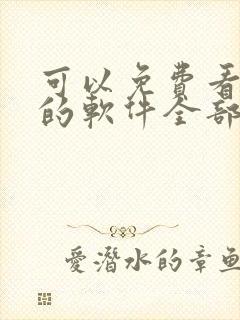 可以免費看
的軟件全部
愛潛水的章魚